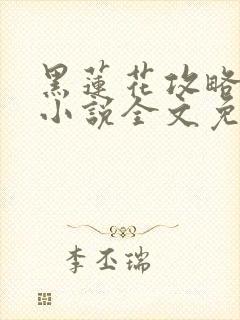 黑蓮花攻略
小說全文免
李丕瑞